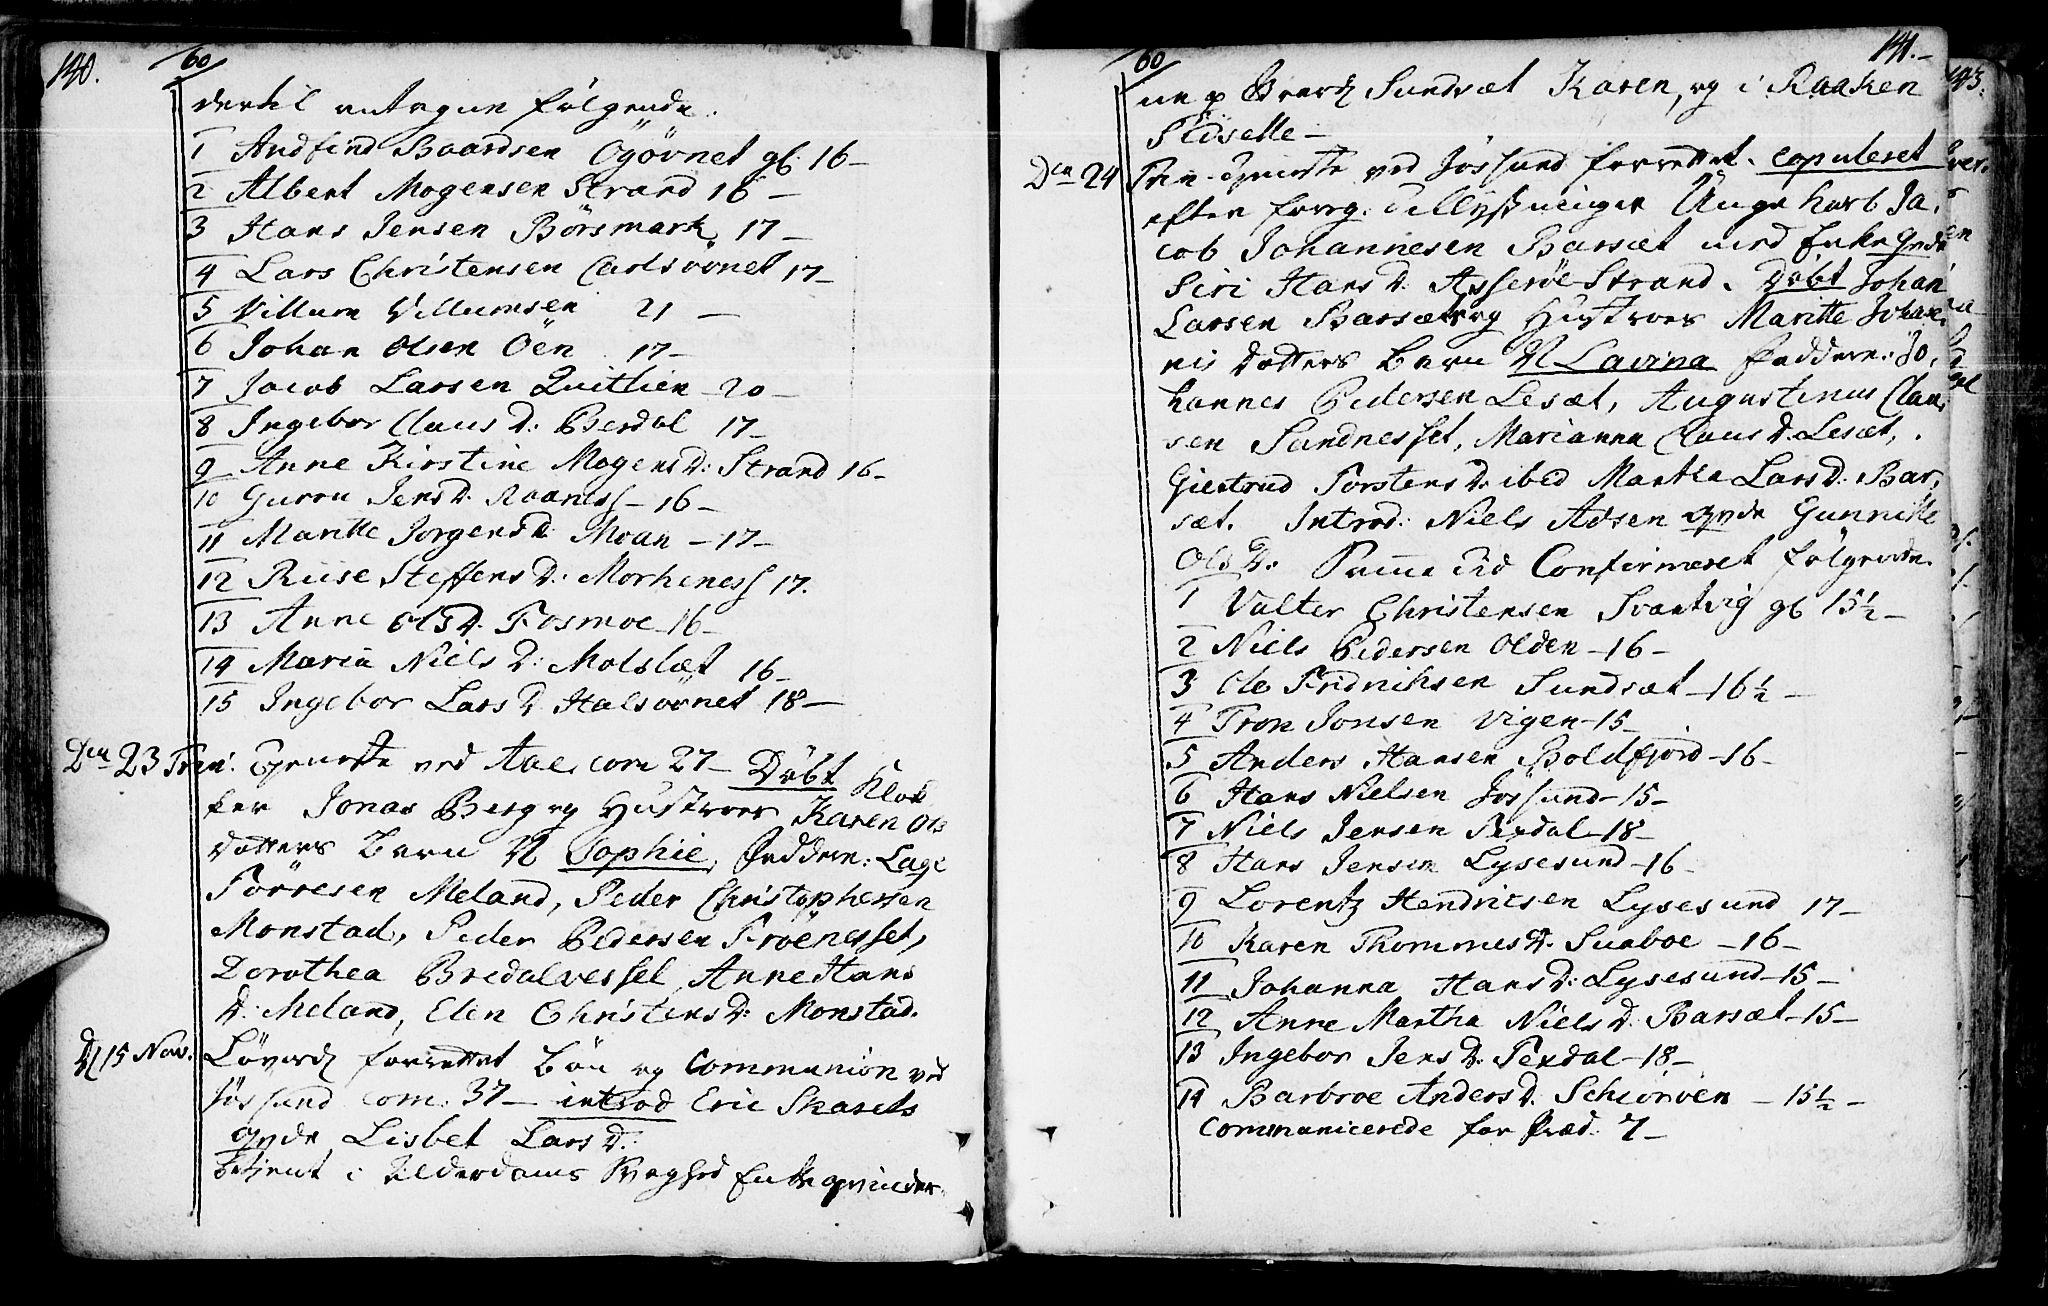 140.
60
dertil antagne følgende.
1 Andfind Baardsen Ögövnet gl. 16 -
2 Albert Mogensen Strand 16 -
3 Hans Jensen Börsmark 17 -
4 Lars Christensen Carlsövnet 17 -
5 Villum Villumsen 21 -
6 Johan Olsen Öen 17 -
7 Jacob Larsen Quitlien - 20 -
8 Ingebor Claus D: Berdal 17 -
9 Anne Kirstine Mogens D: Strand 16 -
10 Guron Jens D. Raaness - 16 -
11 Maritte Jørgens D Moan - 17 -
12 Riise Steffens D: Morkeness 17.
13 Anne Ols D. Fosmoe 16 -
14 Maria Niels D: Molslæt 16 -
15 Ingebor Lars D Halsövnet 18 -
Den 23 Trin: Tjeneste ved Aae, com 27 - Döbt Klok
ker Jonas Berg og Hustroes Karen Ols
Datters Barn N Sophie, Faddere: Lage
Törresen Meland, Peder Christophersen
Monstad, Peder Pedersen Fröenesset,
Dorothea Bredalvessel, Anne Hans
D: Meland, Elen Christens D: Monstad.
D 15 Nov. Löverd forrettet Bön og Communion ved
Jössund com: 37 - introd Eric Skarets
qvde Lisbet Lars D:
betient i Alderdoms Svaghed Enke qvinder
141.-
60
ne p Sundsæt Karen, og i Raaken
Sidselle -
Den 24 Trin. Tjeneste ved Jössund forrettet. copuleret
efter foreg: tillysninger Unge karl Ja,
cob Johannesen Barsæt med Enke qvde
Siri Hans D. Asseröe Strand. Döbt Johan
Larsen Barsæt og Hustroes Maritte Johan
nis Datters Barn N Lavina Faddere: Jo,
hannes Pedersen Lesæt, Augustinus Clau,
sen Sandnesset, Marianna Claus D. Lesæt,
Giertrud Torstens D. ibid Martha Lars D: Bar,
sæt. Introd: Niels Adsen qvde Gunnille
Ols D. Samme tid Confirmeret følgende
1 Valter Christensen Svartvig gl 15 1/2 -
2 Niels Pedersen Olden - 16 -
3 Ole Fridrichsen Sundsæt - 16 1/2 -
4 Tron Jonsen Vigen - 15 -
5 Anders Hansen Boldfjord - 16 -
6 Hans Nielsen Jössund - 15 -
7 Niels Jensen Terdal - 18 -
8 Hans Jensen Lysesund - 16 -
9 Lorentz Hendricsen Lysesund 17 -
10 Karen Thommes D. Sunboe - 16 -
11 Johanna Hans D: Lysesund - 15 -
12 Anne Martha Niels D. Barsæt - 15 -
13 Ingebor Jens D. Terdal - 18 -
14 Barbroe Anders D. Schiörven - 15 1/2 -
Communicerede for Præd. 7 -
143.